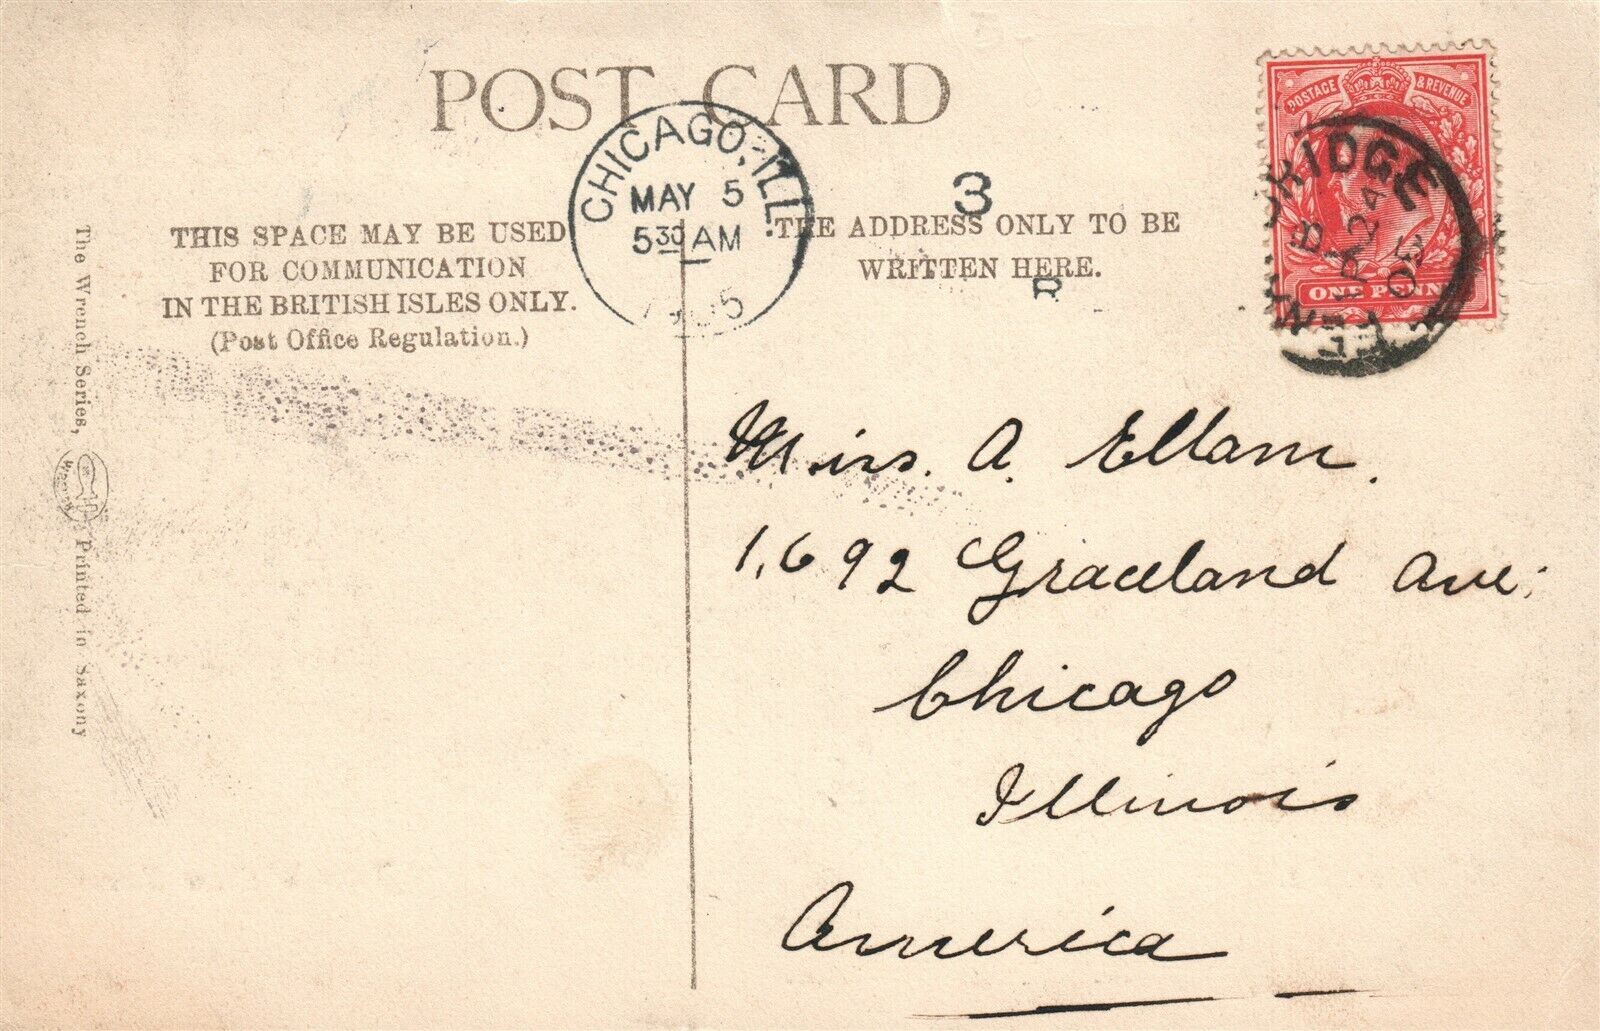 POST CARD
THIS SPACE MAY BE USED
FOR COMMUNICATION
IN THE BRITISH ISLES ONLY.
(Post Office Regulation.)
CHICAGO, ILL.
MAY 5
5 30 AM
3
THE ADDRESS ONLY TO BE
WRITTEN HERE.
R
POSTAGE & REVENUE
ONE PENNY
B
24
05
Miss. A. Ellam.
1,692 Graceland Ave;
Chicago
Illinois
America
The Wrench Series,
Printed in Saxony